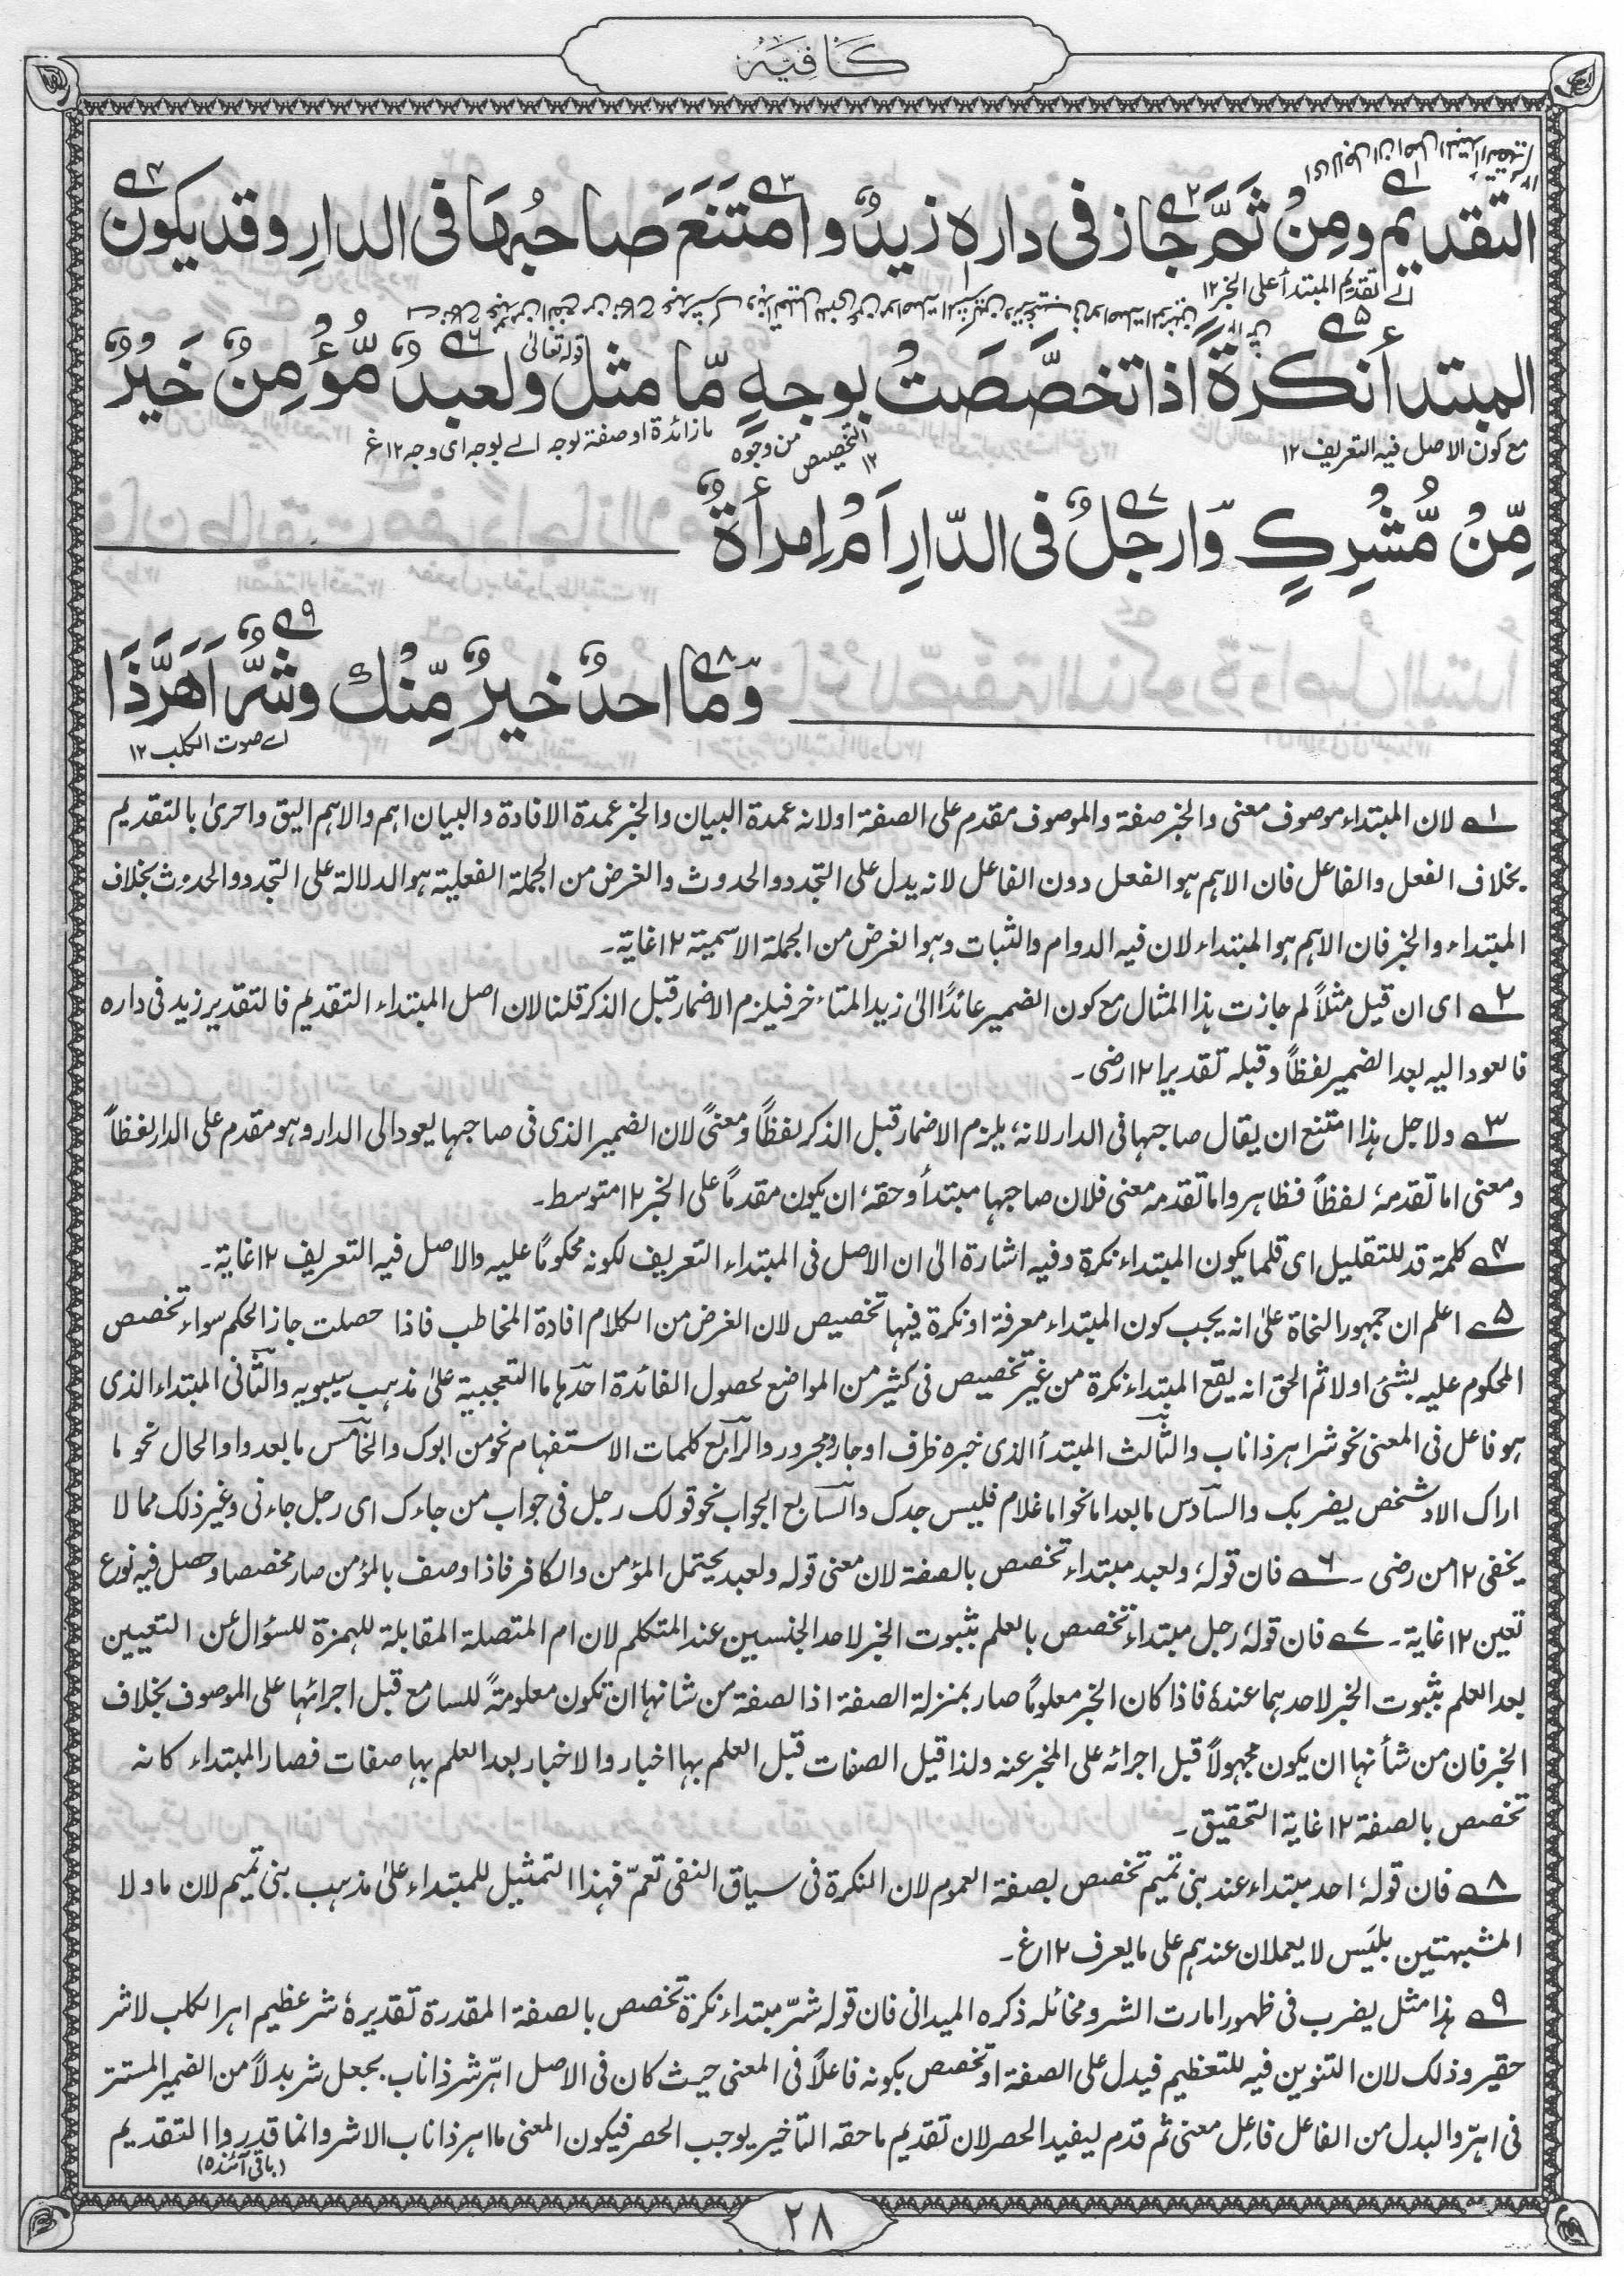 كَافِيَه
التقديم ومِنْ ثَمَّ جَاز فى داره زيدٌ وامتَنَعَ صاحبُهَا فى الدارِ وقد يكون
اے تقديم المبتدأ على الخبر ١٢
المبتدأ نكرةً اذا تخصَّصَتْ بوجهٍ مّا مثل قوله تعالىٰ ولعبدٌ مُّؤْمِنٌ خَيْرٌ
مع كون الاصل فيه التعريف ١٢
من وجوه التخصيص ١٢
ما زائدة او صفة لوجه اے بوجه اى وجه ١٢ غ
مِّنْ مُّشْرِكٍ وَّارجلٌ فى الدّارِ اَمْ اِمرأةٌ
وَّما احدٌ خيرٌ مِّنْك وشرٌّ اَهَرَّ ذَا
اے صوت الكلب ١٢
١ لان المبتداء موصوف معنى والخبر صفة والموصوف مقدم على الصفة اولانه عمدة البيان والخبر عمدة الافادة والبيان اهم والاهم اليق واحرىٰ بالتقديم
بخلاف الفعل والفاعل فان الاهم هو الفعل دون الفاعل لانه يدل على التجدد والحدوث والغرض من الجملة الفعلية هو الدلالة على التجدد والحدوث بخلاف
المبتداء والخبر فان الاهم هو المبتداء لان فيه الدوام والثبات وهو الغرض من الجملة الاسمية ١٢ غاية۔
٢ اى ان قيل مثلاً لم جازت هذا المثال مع كون الضمير عائدًا الىٰ زيد المتاخر فيلزم الاضمار قبل الذكر قلنا لان اصل المبتداء التقديم فالتقدير زيد فى داره
فالعود اليه بعد الضمير لفظاً وقبله تقديرا ١٢ رضى۔
٣ ولاجل هذا امتنع ان يقال صاحبها فى الدار لانه، يلزم الاضمار قبل الذكر لفظاً ومعنىً لان الضمير الذى فى صاحبها يعود الى الدار وهو مقدم على الدار لفظاً
ومعنى اما تقدمه، لفظاً فظاهر واما تقدمه معنى فلان صاحبها مبتدأ وحقه، ان يكون مقدماً على الخبر ١٢ متوسط۔
٤ كلمة قد للتقليل اى قلما يكون المبتداء نكرة وفيه اشارة الىٰ ان الاصل فى المبتداء التعريف لكونه محكومًا عليه والاصل فيه التعريف ١٢ غاية۔
٥ اعلم ان جمهور النحاة علىٰ انه يجب كون المبتداء معرفة او نكرة فيها تخصيص لان الغرض من الكلام افادة المخاطب فاذا حصلت جاز الحكم سواء تخصص
المحكوم عليه بشئ اولا ثم الحق انه يقع المبتداء نكرة من غير تخصيص فى كثير من المواضع لحصول الفائدة احدها ما التعجبية علىٰ مذهب سيبويه والثانى المبتداء الذى
هو فاعل فى المعنى نحو شر اهر ذا ناب والثالث المبتدأ الذى خبره ظرف او جار ومجرور والرابع كلمات الاستفهام نحو من ابوك والخامس ما بعد واو الحال نحو ما
اراك الا وشخص يضربك والسادس ما بعد اما نحو اما غلام فليس جدك والسابع الجواب نحو قولك رجل فى جواب من جاءك اى رجل جاءنى وغير ذلك مما لا
يخفى ١٢ من رضى۔ ٦ فان قوله، ولعبد مبتداء تخصص بالصفة لان معنى قوله ولعبد يحتمل المؤمن والكافر فاذا وصف بالمؤمن صار مخصصا وحصل فيه نوع
تعين ١٢ غاية۔ ٧ فان قوله، رجل مبتداء تخصص بالعلم بثبوت الخبر لاحد الجنسين عند المتكلم لان ام المتصلة المقابلة للهمزة للسؤال عن التعيين
بعد العلم بثبوت الخبر لاحدهما عنده فاذا كان الخبر معلومًا صار بمنزلة الصفة اذ الصفة من شانها ان تكون معلومةً للسامع قبل اجرائها على الموصوف بخلاف
الخبر فان من شأنها ان يكون مجهولاً قبل اجرائه على المخبر عنه ولذا قيل الصفات قبل العلم بها اخبار والاخبار بعد العلم بها صفات فصار المبتداء كانه
تخصص بالصفة ١٢ غاية التحقيق۔
٨ فان قوله، احد مبتداء عند بنى تميم تخصص بصفة العموم لان النكرة فى سياق النفى تعمّ فهذا التمثيل للمبتداء علىٰ مذهب بنى تميم لان ما ولا
المشبهتين بليَس لا يعملان عندهم على ما يعرف ١٢ غ۔
٩ هذا مثل يضرب فى ظهور امارت الشر ومخائله ذكره الميدانى فان قوله شرّ مبتداء نكرة تخصص بالصفة المقدرة تقديره شر عظيم اهر الكلب لا شر
حقير وذلك لان التنوين فيه للتعظيم فيدل على الصفة او تخصص بكونه فاعلاً فى المعنى حيث كان فى الاصل اهرّ شر ذا ناب۔ بجعل شر بدلاً من الضمير المستتر
فى اهرّ والبدل من الفاعل فاعِل معنى ثم قدم ليفيد الحصر لان تقديم ما حقه التاخير يوجب الحصر فيكون المعنى ما اهر ذا ناب الا شر وانما قدروا التقديم
(باقى آئنده)
٢٨